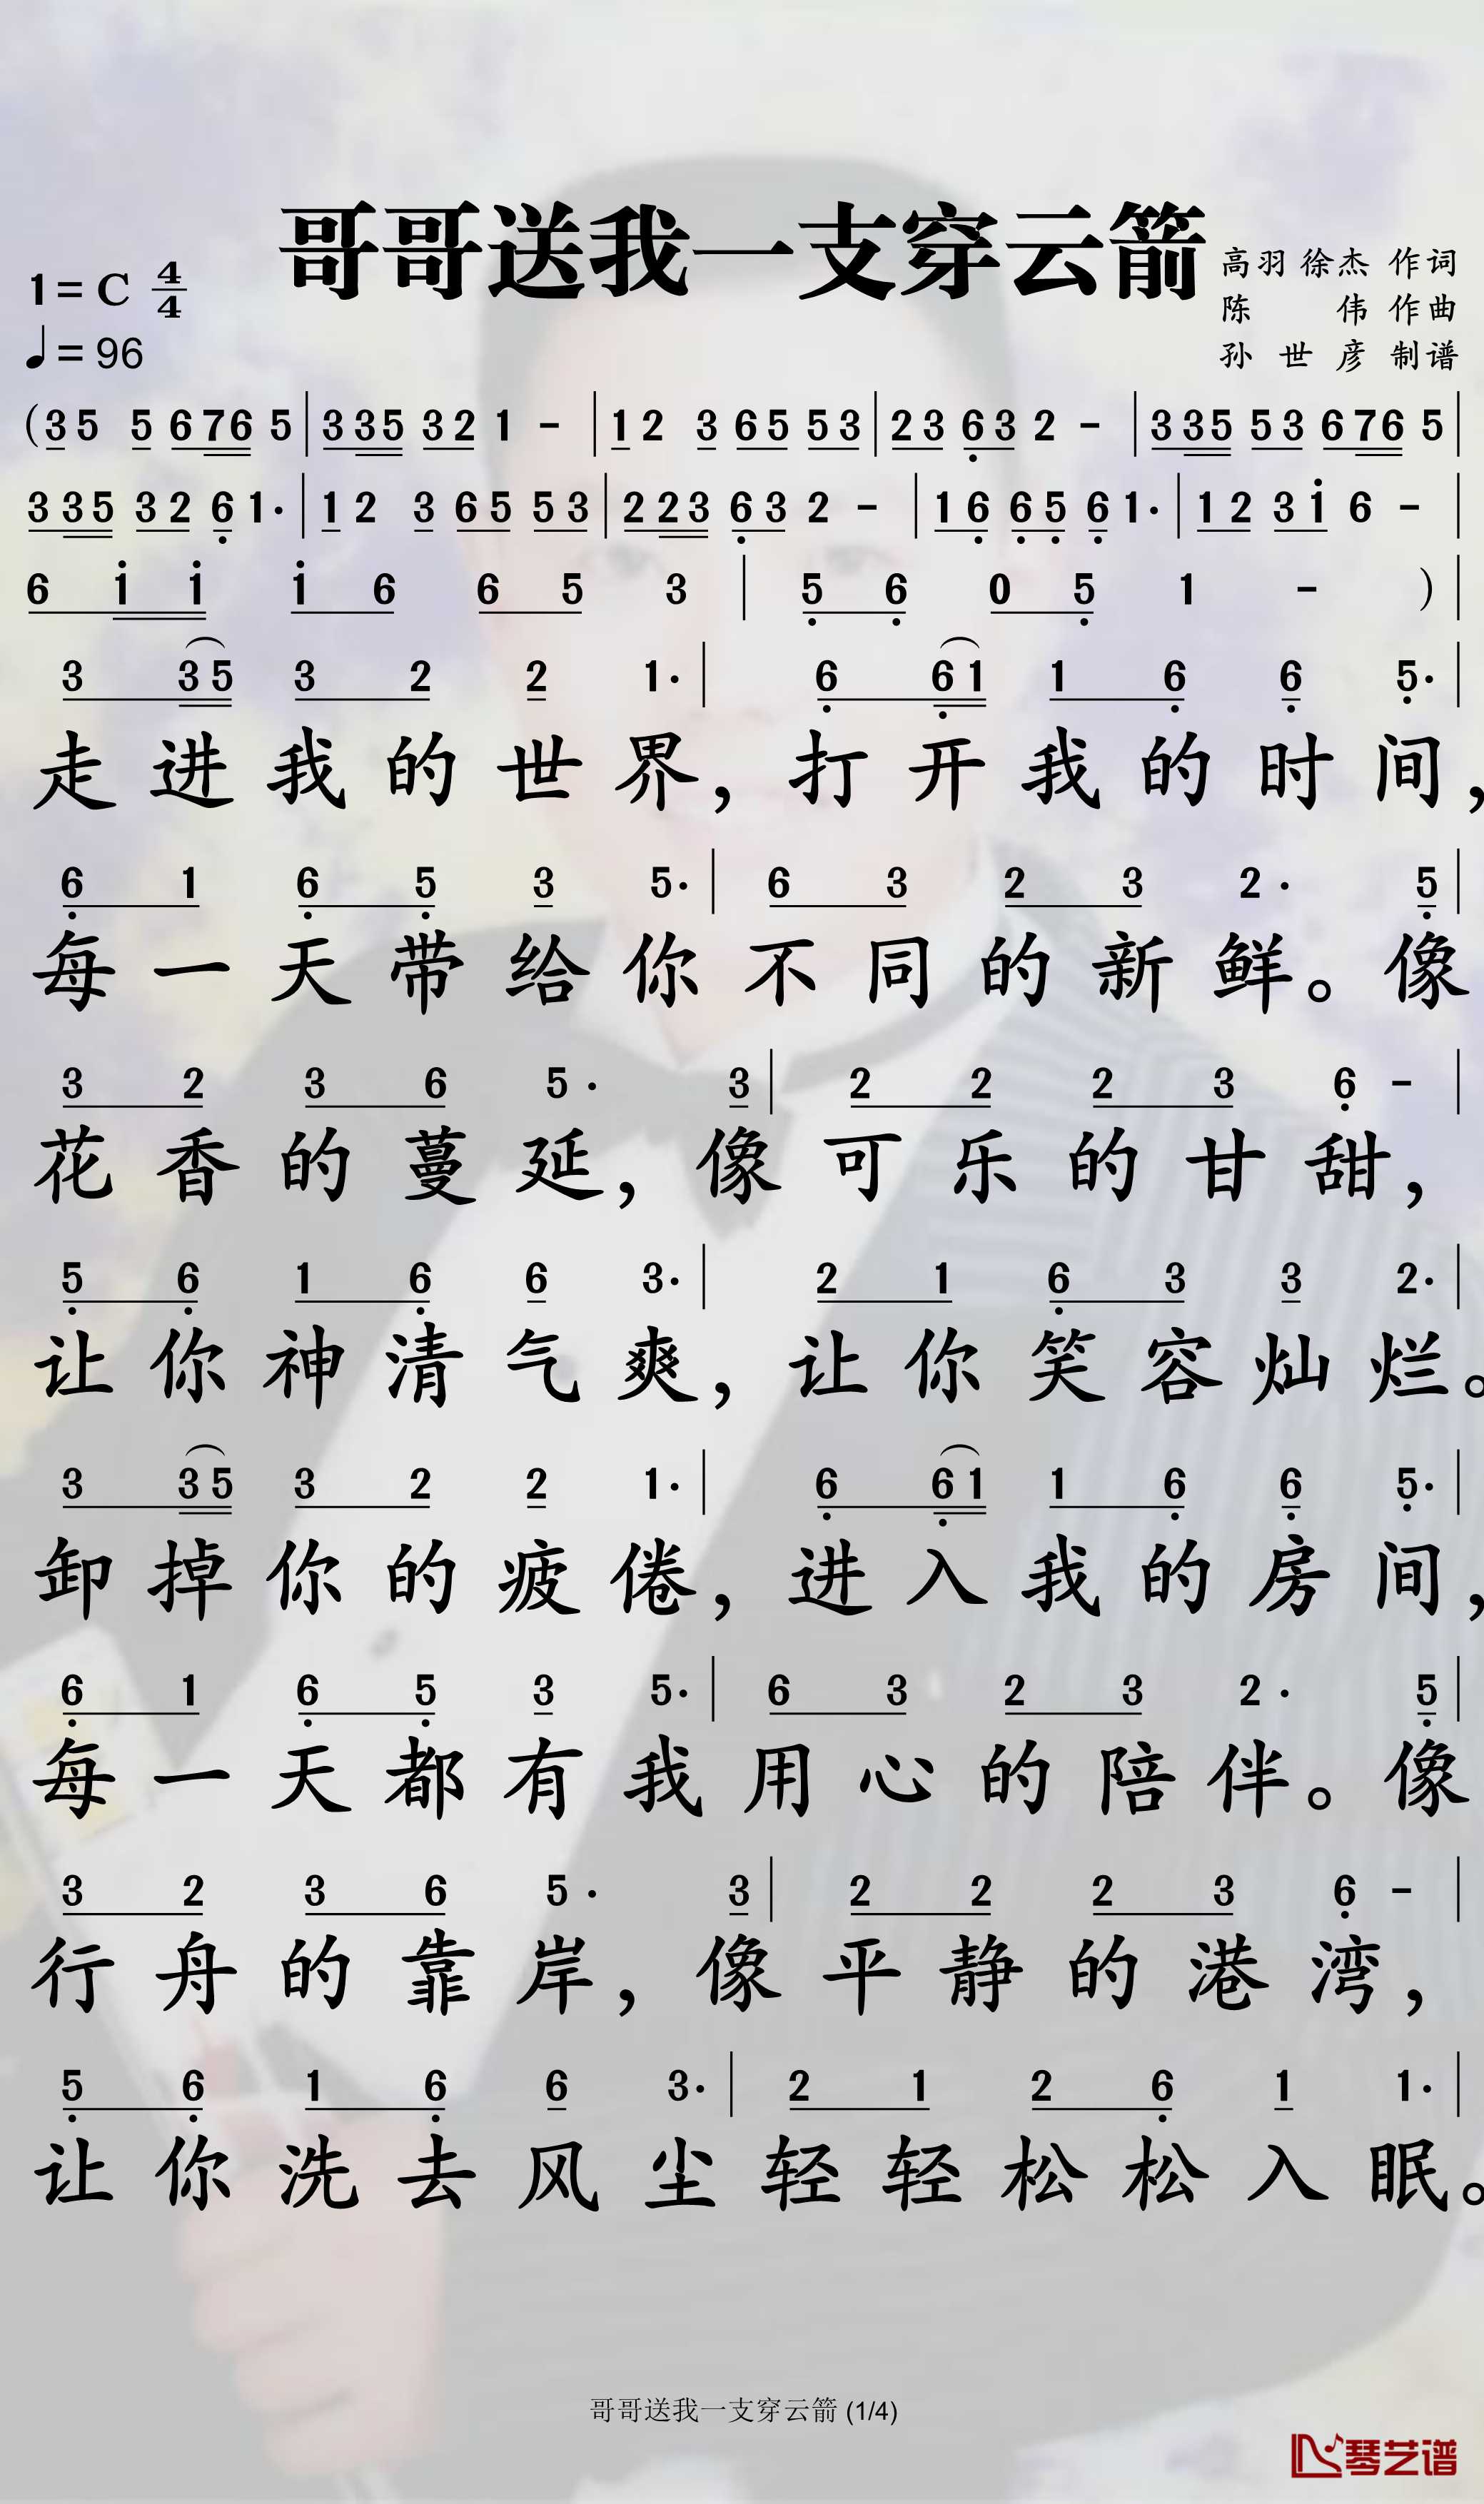 哥哥送我一支穿云箭
高羽 徐杰 作词
1=C 4/4
陈 伟 作曲
♩=96
孙 世 彦 制谱
(3 5 5 6 7 6 5 | 3 3 5 3 2 1 - | 1 2 3 6 5 5 3 | 2 3 6̣ 3 2 - | 3 3 5 5 3 6 7 6 5 |
3 3 5 3 2 6̣ 1· | 1 2 3 6 5 5 3 | 2 2 3 6̣ 3 2 - | 1 6̣ 6̣ 5̣ 6̣ 1· | 1 2 3 1̇ 6 - |
6 1̇ 1̇ 1̇ 6 6 5 3 | 5̣ 6̣ 0 5̣ 1 - ) |
3 3 5 3 2 2 1· | 6̣ 6̣ 1 1 6̣ 6̣ 5̣· |
走进我的世界，打开我的时间，
6̣ 1 6̣ 5̣ 3 5· | 6 3 2 3 2· 5̣ |
每一天带给你不同的新鲜。像
3 2 3 6 5· 3 | 2 2 2 3 6̣ - |
花香的蔓延，像可乐的甘甜，
5̣ 6̣ 1 6̣ 6 3· | 2 1 6̣ 3 3 2· |
让你神清气爽，让你笑容灿烂。
3 3 5 3 2 2 1· | 6̣ 6̣ 1 1 6̣ 6̣ 5̣· |
卸掉你的疲倦，进入我的房间，
6̣ 1 6̣ 5̣ 3 5· | 6 3 2 3 2· 5̣ |
每一天都有我用心的陪伴。像
3 2 3 6 5· 3 | 2 2 2 3 6̣ - |
行舟的靠岸，像平静的港湾，
5̣ 6̣ 1 6̣ 6 3· | 2 1 2 6̣ 1 1· |
让你洗去风尘轻轻松松入眠。
哥哥送我一支穿云箭 (1/4)
琴艺谱